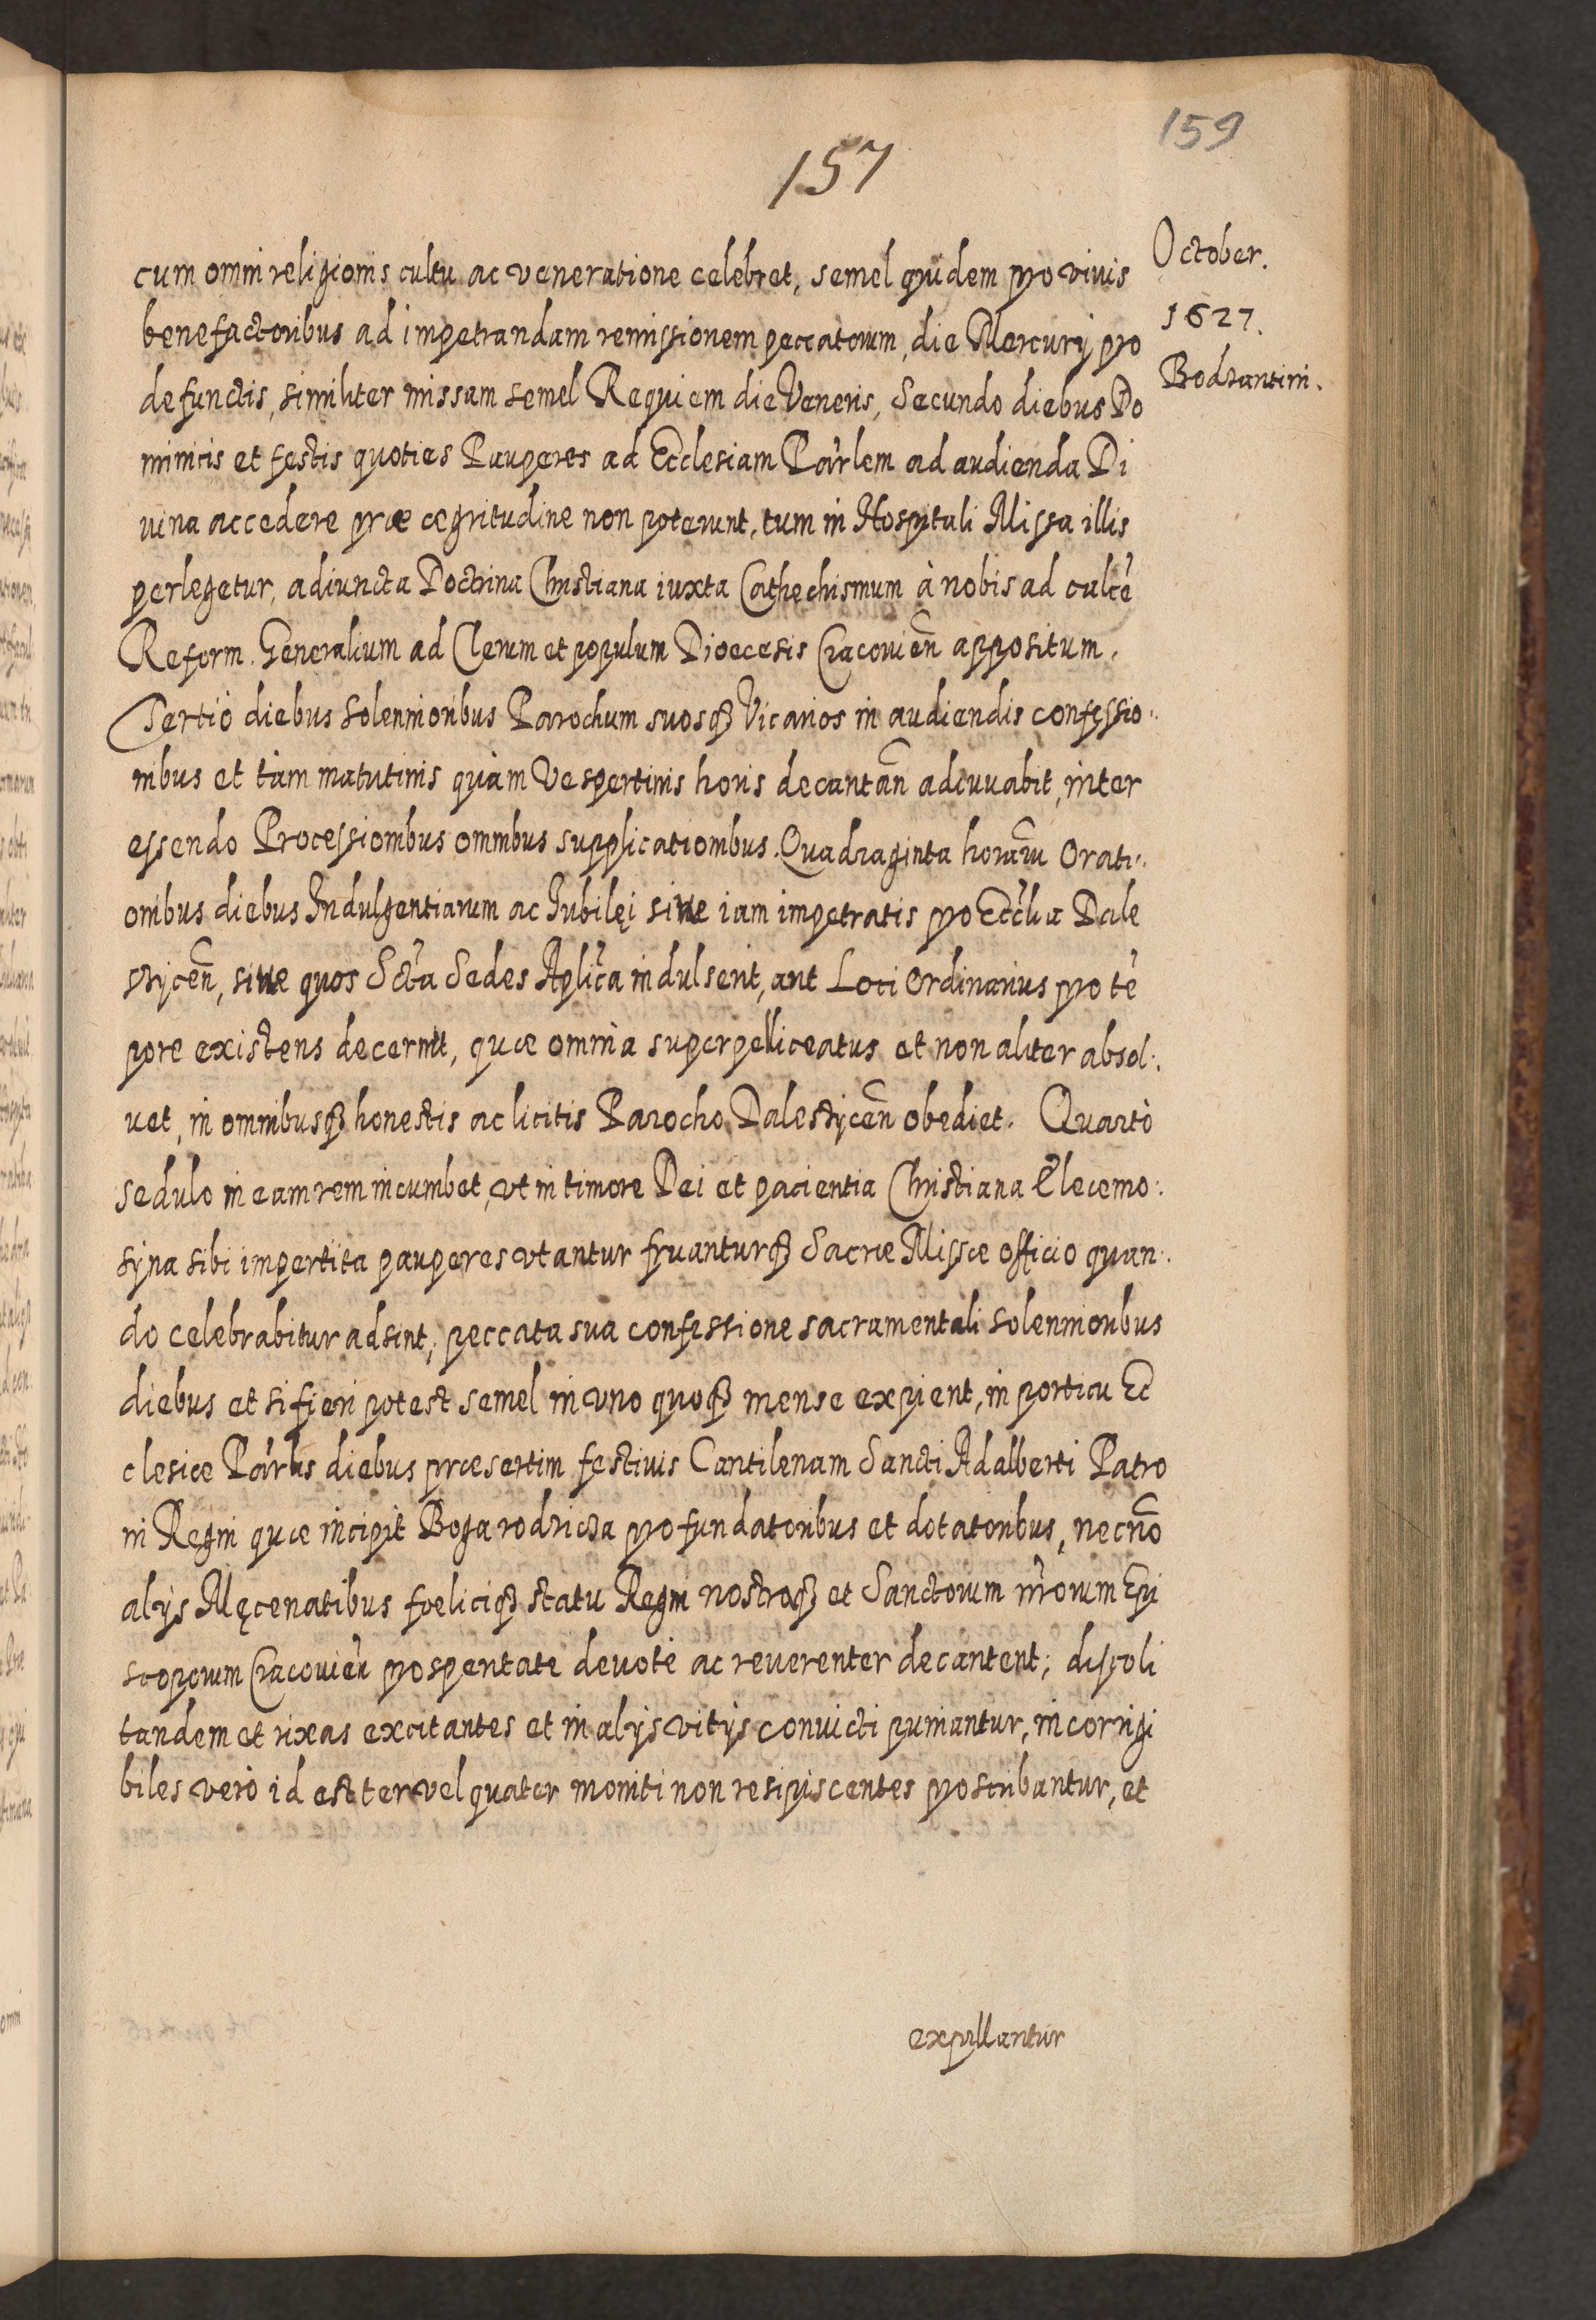 159
157
October.
1627.
Bodzantini.
cum omni religionis cultu ac veneratione celebret, semel quidem pro vivis
benefactoribus ad impetrandam remissionem peccatorum, die Mercurij pro
defunctis, similiter missam semel Requiem die Veneris, Secundo diebus Do
minicis et festis quoties Pauperes ad Ecclesiam Parlem ad audienda Di
uina accedere præ ægritudine non poterunt, tum in Hospitali Missa illis
perlegetur, adiuncta Doctrina Christiana iuxta Cathechismum à nobis ad calcē
Reform. Generalium ad Clerum et populum Dioecesis Cracovien̄ appositum.
Tertiò diebus solennioribus Parochum suosq3 Vicarios in audiendis confessio..
nibus et tàm matutinis quàm Vespertinis horis decantan̄ adiuuabit, inter
essendo Processionibus omnibus supplicationibus. Quadraginta horarū Orati..
onibus diebus Indulgentiarum ac Jubilęi siue iam impetratis pro Ecclia Dale
szycen̄, siue quos Scta Sedes Aplica indulserit, aut Loci Ordinarius pro tē
pore existens decernit, quæ omnia superpelliceatus et non aliter absol:
uet, in omnibusq3 honestis ac licitis Parocho Daleszycen̄ obediet. Quartò
sedulo in eam rem incumbet, vt in timore Dei et pacientia Christiana Eleemo:
syna sibi impertita pauperes vtantur fruanturq3 Sacræ Missæ officio quan:
do celebrabitur adsint, peccata sua confessione sacramentali solennioribus
diebus et si fieri potest semel in vno quoq3 mense expient, in porticu Ec
clesiæ Parlis diebus præsertim festiuis Cantilenam Sancti Adalberti Patro
ni Regni quæ incipit Boga rodzicza pro fundatoribus et dotatoribus, necnō
alijs Męcenatibus fœliciq3 statu Regni nostroq3 et Sanctorum nr̄orum Epi
scoporum Cracouien̄ prosperitate deuotè ac reuerenter decantent; discoli
tandem et rixas excitantes et in alijs vitijs conuicti puniantur, incorrigi
biles verò id est ter vel quater moniti non resipiscentes proscribantur, et
expellantur